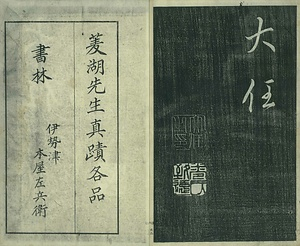 大任
菱湖先生真蹟各品
書林
伊勢津
木屋左兵衛